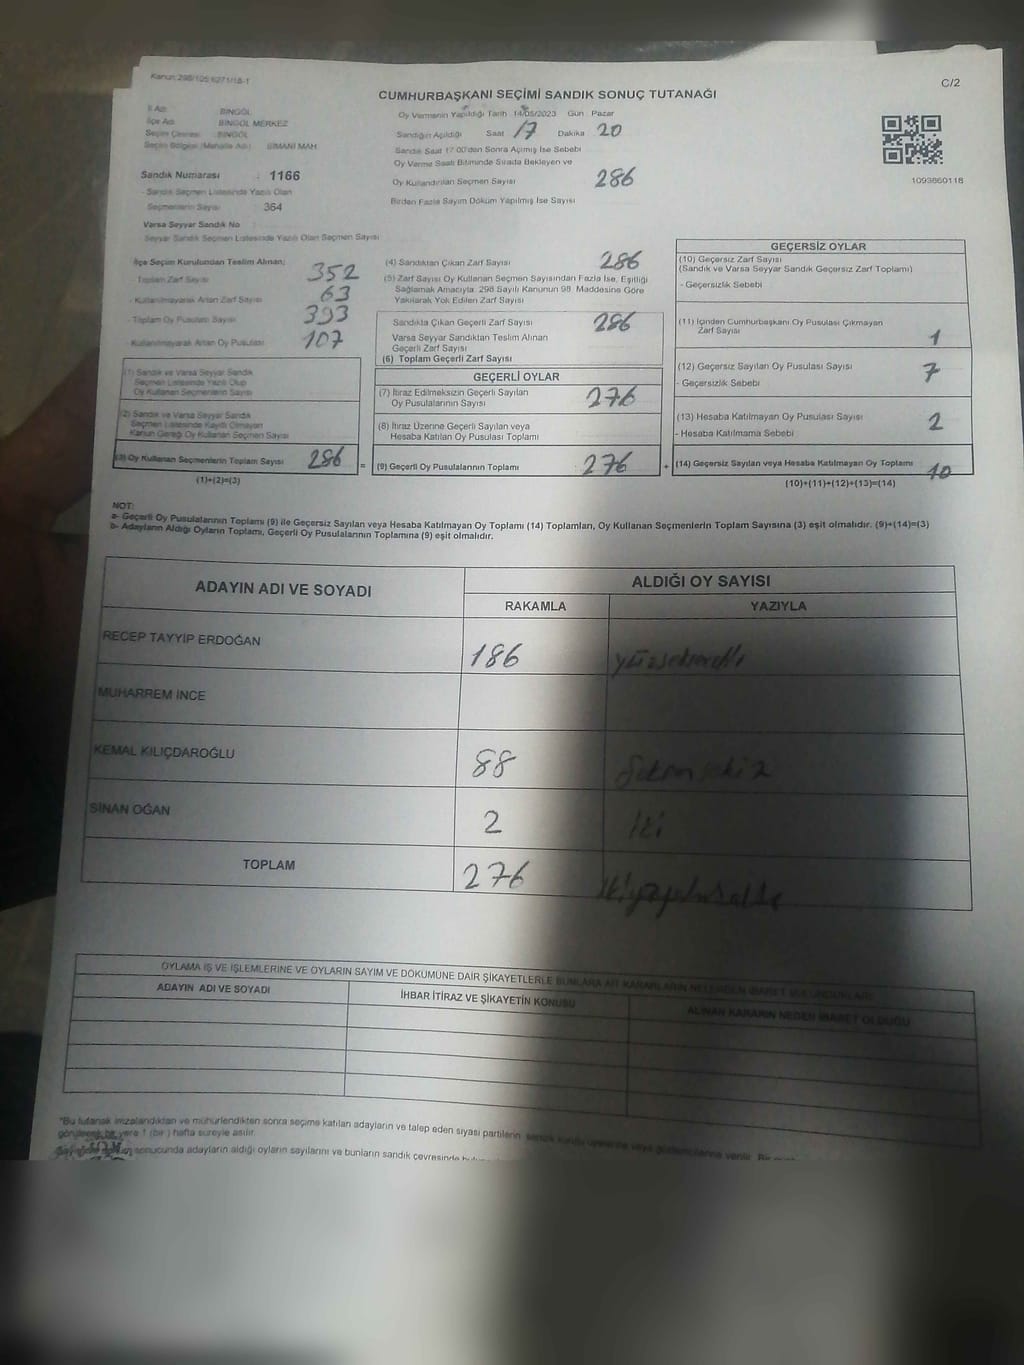 Kanun:298/105 6271/18-1
C/2
CUMHURBAŞKANI SEÇİMİ SANDIK SONUÇ TUTANAĞI
İl Adı BİNGÖL
İlçe Adı BİNGÖL MERKEZ
Seçim Çevresi BİNGÖL
Seçim Bölgesi (Mahalle Adı) SİMANİ MAH
Sandık Numarası : 1166
- Sandık Seçmen Listesinde Yazılı Olan
Seçmenlerin Sayısı 364
Varsa Seyyar Sandık No
Seyyar Sandık Seçmen Listesinde Yazılı Olan Seçmen Sayısı
Oy Vermenin Yapıldığı Tarih 14/05/2023 Gün Pazar
Sandığın Açıldığı Saat 17 Dakika 20
Sandık Saat 17:00'den Sonra Açılmış İse Sebebi
Oy Verme Saati Bitiminde Sırada Bekleyen ve
Oy Kullandırılan Seçmen Sayısı 286
Birden Fazla Sayım Döküm Yapılmış İse Sayısı
1093860118
İlçe Seçim Kurulundan Teslim Alınan;
- Toplam Zarf Sayısı 352
- Kullanılmayarak Artan Zarf Sayısı 63
- Toplam Oy Pusulası Sayısı 393
- Kullanılmayarak Artan Oy Pusulası 107
(1) Sandık ve Varsa Seyyar Sandık
Seçmen Listesinde Yazılı Olup
Oy Kullanan Seçmen Sayısı
(2) Sandık ve Varsa Seyyar Sandık
Seçmen Listesinde Kayıtlı Olmayan
Kanun Gereği Oy Kullanan Seçmen Sayısı
(3) Oy Kullanan Seçmenlerin Toplam Sayısı 286 =
(1)+(2)=(3)
(4) Sandıktan Çıkan Zarf Sayısı 286
(5) Zarf Sayısı Oy Kullanan Seçmen Sayısından Fazla İse, Eşitliği
Sağlamak Amacıyla, 298 Sayılı Kanunun 98. Maddesine Göre
Yakılarak Yok Edilen Zarf Sayısı
Sandıkta Çıkan Geçerli Zarf Sayısı 286
Varsa Seyyar Sandıktan Teslim Alınan
Geçerli Zarf Sayısı
(6) Toplam Geçerli Zarf Sayısı
GEÇERLİ OYLAR
(7) İtiraz Edilmeksizin Geçerli Sayılan
Oy Pusulalarının Sayısı 276
(8) İtiraz Üzerine Geçerli Sayılan veya
Hesaba Katılan Oy Pusulası Toplamı
(9) Geçerli Oy Pusulalarının Toplamı : 276 +
GEÇERSİZ OYLAR
(10) Geçersiz Zarf Sayısı
(Sandık ve Varsa Seyyar Sandık Geçersiz Zarf Toplamı)
- Geçersizlik Sebebi
(11) İçinden Cumhurbaşkanı Oy Pusulası Çıkmayan
Zarf Sayısı 1
(12) Geçersiz Sayılan Oy Pusulası Sayısı 7
- Geçersizlik Sebebi
(13) Hesaba Katılmayan Oy Pusulası Sayısı 2
- Hesaba Katılmama Sebebi
(14) Geçersiz Sayılan veya Hesaba Katılmayan Oy Toplamı 10
(10)+(11)+(12)+(13)=(14)
NOT:
a- Geçerli Oy Pusulalarının Toplamı (9) ile Geçersiz Sayılan veya Hesaba Katılmayan Oy Toplamı (14) Toplamları, Oy Kullanan Seçmenlerin Toplam Sayısına (3) eşit olmalıdır. (9)+(14)=(3)
b- Adayların Aldığı Oyların Toplamı, Geçerli Oy Pusulalarının Toplamına (9) eşit olmalıdır.
ADAYIN ADI VE SOYADI ALDIĞI OY SAYISI
RAKAMLA YAZIYLA
RECEP TAYYİP ERDOĞAN 186
MUHARREM İNCE
KEMAL KILIÇDAROĞLU 88 Seksensekiz
SİNAN OĞAN 2 İki
TOPLAM 276
OYLAMA İŞ VE İŞLEMLERİNE VE OYLARIN SAYIM VE DÖKÜMÜNE DAİR ŞİKAYETLERLE BUNLARA AİT KARARLARIN NELERDEN İBARET BULUNDUKLARI
ADAYIN ADI VE SOYADI İHBAR İTİRAZ VE ŞİKAYETİN KONUSU ALINAN KARARIN NEDEN İBARET OLDUĞU
*Bu tutanak imzalandıktan ve mühürlendikten sonra seçime katılan adayların ve talep eden siyasi partilerin sandık kurulu üyelerine veya gözlemcilerine verilir. Bir
görülecek bir yere 1 (bir) hafta süreyle asılır.
sonucunda adayların aldığı oyların sayılarını ve bunların sandık çevresinde